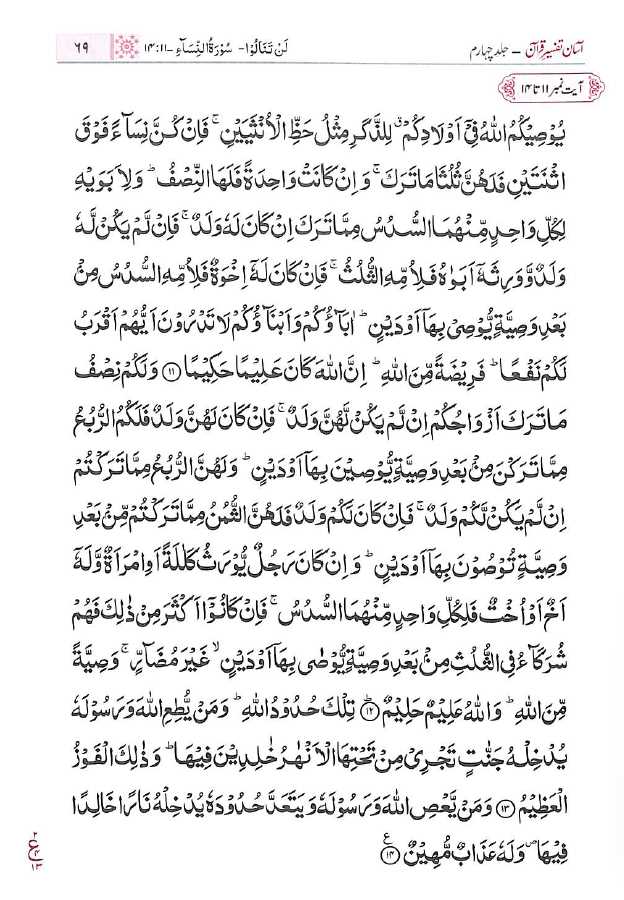 آسان تفسیر قرآن – جلد چہارم لَنْ تَنَالُوْا- سُوْرَةُ النِّسَآءِ -۱۱:۱۴ ۶۹
آیت نمبر ۱۱ تا ۱۴
يُوْصِيْكُمُ اللّٰهُ فِيْۤ اَوْلَادِكُمْ ۗ لِلذَّكَرِ مِثْلُ حَظِّ الْاُنْثَيَيْنِ ۚ فَاِنْ كُنَّ نِسَآءً فَوْقَ
اثْنَتَيْنِ فَلَهُنَّ ثُلُثَا مَا تَرَكَ ۚ وَ اِنْ كَانَتْ وَاحِدَةً فَلَهَا النِّصْفُ ؕ وَ لِاَبَوَيْهِ
لِكُلِّ وَاحِدٍ مِّنْهُمَا السُّدُسُ مِمَّا تَرَكَ اِنْ كَانَ لَهٗ وَلَدٌ ۚ فَاِنْ لَّمْ يَكُنْ لَّهٗ
وَلَدٌ وَّ وَرِثَهٗۤ اَبَوٰهُ فَلِاُمِّهِ الثُّلُثُ ۚ فَاِنْ كَانَ لَهٗۤ اِخْوَةٌ فَلِاُمِّهِ السُّدُسُ مِنْۢ
بَعْدِ وَصِيَّةٍ يُّوْصِيْ بِهَاۤ اَوْ دَيْنٍ ؕ اٰبَآؤُكُمْ وَ اَبْنَآؤُكُمْ لَا تَدْرُوْنَ اَيُّهُمْ اَقْرَبُ
لَكُمْ نَفْعًا ؕ فَرِيْضَةً مِّنَ اللّٰهِ ؕ اِنَّ اللّٰهَ كَانَ عَلِيْمًا حَكِيْمًا ﴿۱۱﴾ وَ لَكُمْ نِصْفُ
مَا تَرَكَ اَزْوَاجُكُمْ اِنْ لَّمْ يَكُنْ لَّهُنَّ وَلَدٌ ۚ فَاِنْ كَانَ لَهُنَّ وَلَدٌ فَلَكُمُ الرُّبُعُ
مِمَّا تَرَكْنَ مِنْۢ بَعْدِ وَصِيَّةٍ يُّوْصِيْنَ بِهَاۤ اَوْ دَيْنٍ ؕ وَ لَهُنَّ الرُّبُعُ مِمَّا تَرَكْتُمْ
اِنْ لَّمْ يَكُنْ لَّكُمْ وَلَدٌ ۚ فَاِنْ كَانَ لَكُمْ وَلَدٌ فَلَهُنَّ الثُّمُنُ مِمَّا تَرَكْتُمْ مِّنْۢ بَعْدِ
وَصِيَّةٍ تُوْصُوْنَ بِهَاۤ اَوْ دَيْنٍ ؕ وَ اِنْ كَانَ رَجُلٌ يُّوْرَثُ كَلٰلَةً اَوِ امْرَاَةٌ وَّ لَهٗۤ
اَخٌ اَوْ اُخْتٌ فَلِكُلِّ وَاحِدٍ مِّنْهُمَا السُّدُسُ ۚ فَاِنْ كَانُوْۤا اَكْثَرَ مِنْ ذٰلِكَ فَهُمْ
شُرَكَآءُ فِي الثُّلُثِ مِنْۢ بَعْدِ وَصِيَّةٍ يُّوْصٰى بِهَاۤ اَوْ دَيْنٍ ۙ غَيْرَ مُضَآرٍّ ۚ وَصِيَّةً
مِّنَ اللّٰهِ ؕ وَ اللّٰهُ عَلِيْمٌ حَلِيْمٌ ﴿۱۲﴾ؕ تِلْكَ حُدُوْدُ اللّٰهِ ؕ وَ مَنْ يُّطِعِ اللّٰهَ وَ رَسُوْلَهٗ
يُدْخِلْهُ جَنّٰتٍ تَجْرِيْ مِنْ تَحْتِهَا الْاَنْهٰرُ خٰلِدِيْنَ فِيْهَا ؕ وَ ذٰلِكَ الْفَوْزُ
الْعَظِيْمُ ﴿۱۳﴾ وَ مَنْ يَّعْصِ اللّٰهَ وَ رَسُوْلَهٗ وَ يَتَعَدَّ حُدُوْدَهٗ يُدْخِلْهُ نَارًا خَالِدًا
فِيْهَا ۪ وَ لَهٗ عَذَابٌ مُّهِيْنٌ ﴿۱۴﴾ع
۲
ع
۴
۱۳